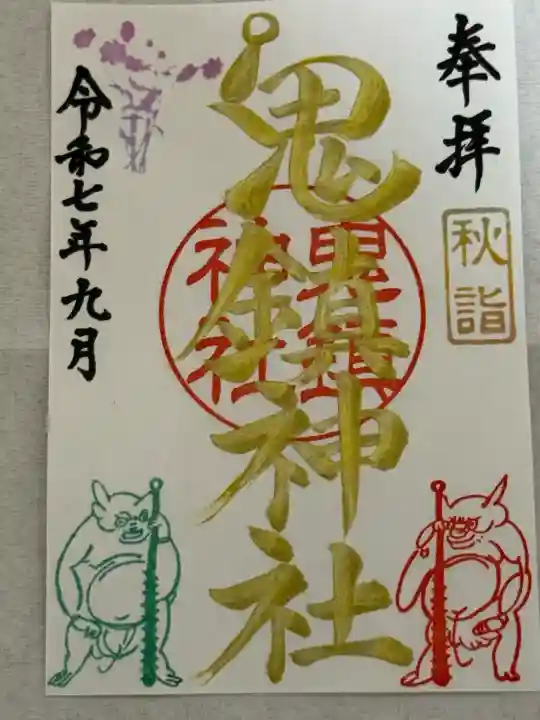 奉拝
秋詣
鬼鎮神社
鬼鎮神社
令和七年九月